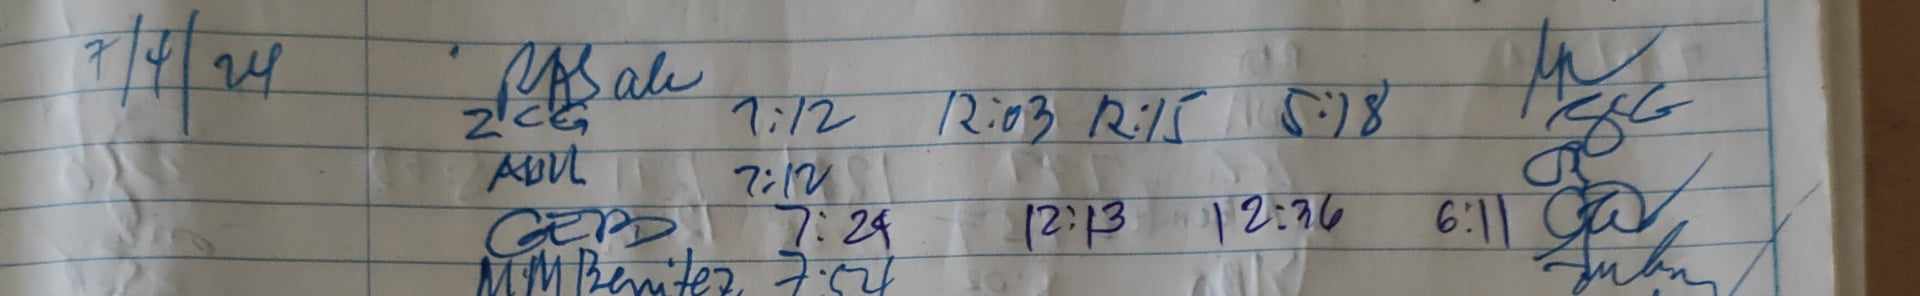 7/4/24
ZCG 7:12 12:03 12:15 5:18
7:12
GERD 7:24 12:13 12:36 6:11
M.M Benitez 7:54